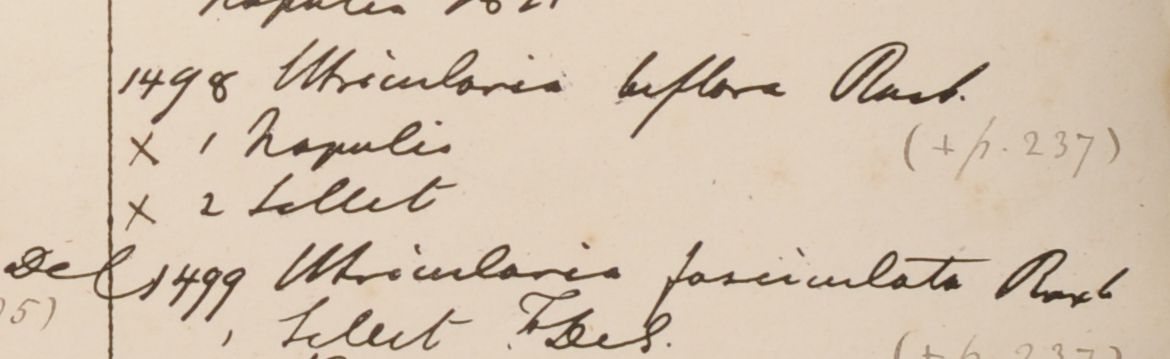 Napulia 1821
1498 Utricularia biflora Roxb.
x 1 Napulia (+ p. 237)
x 2 Sillet
Del 1499 Utricularia fasciculata Roxb
5)
1 Sillet F. De S.
(+ p. 237)